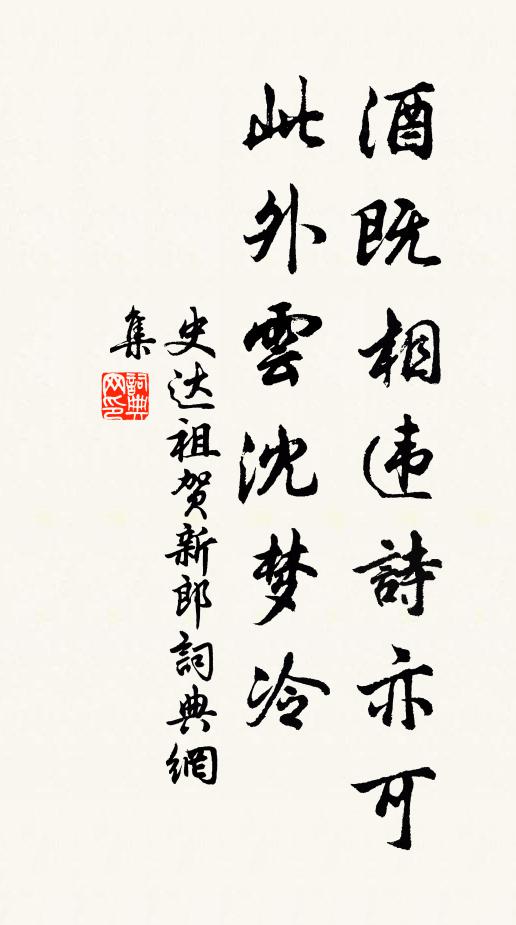 酒既相违詩亦可
此外雲沈梦冷
史达祖贺新郎詞典網
集
詞典
网印